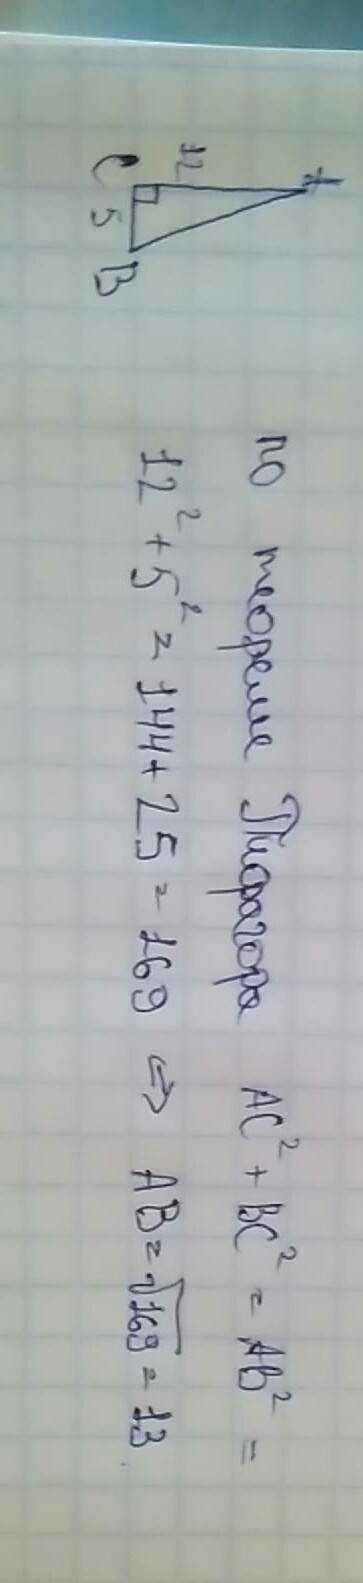 A
12
C
5
B
по теореме Пифагора AC² + BC² = AB² =
12² + 5² = 144 + 25 = 169 ⇔ AB = √169 = 13